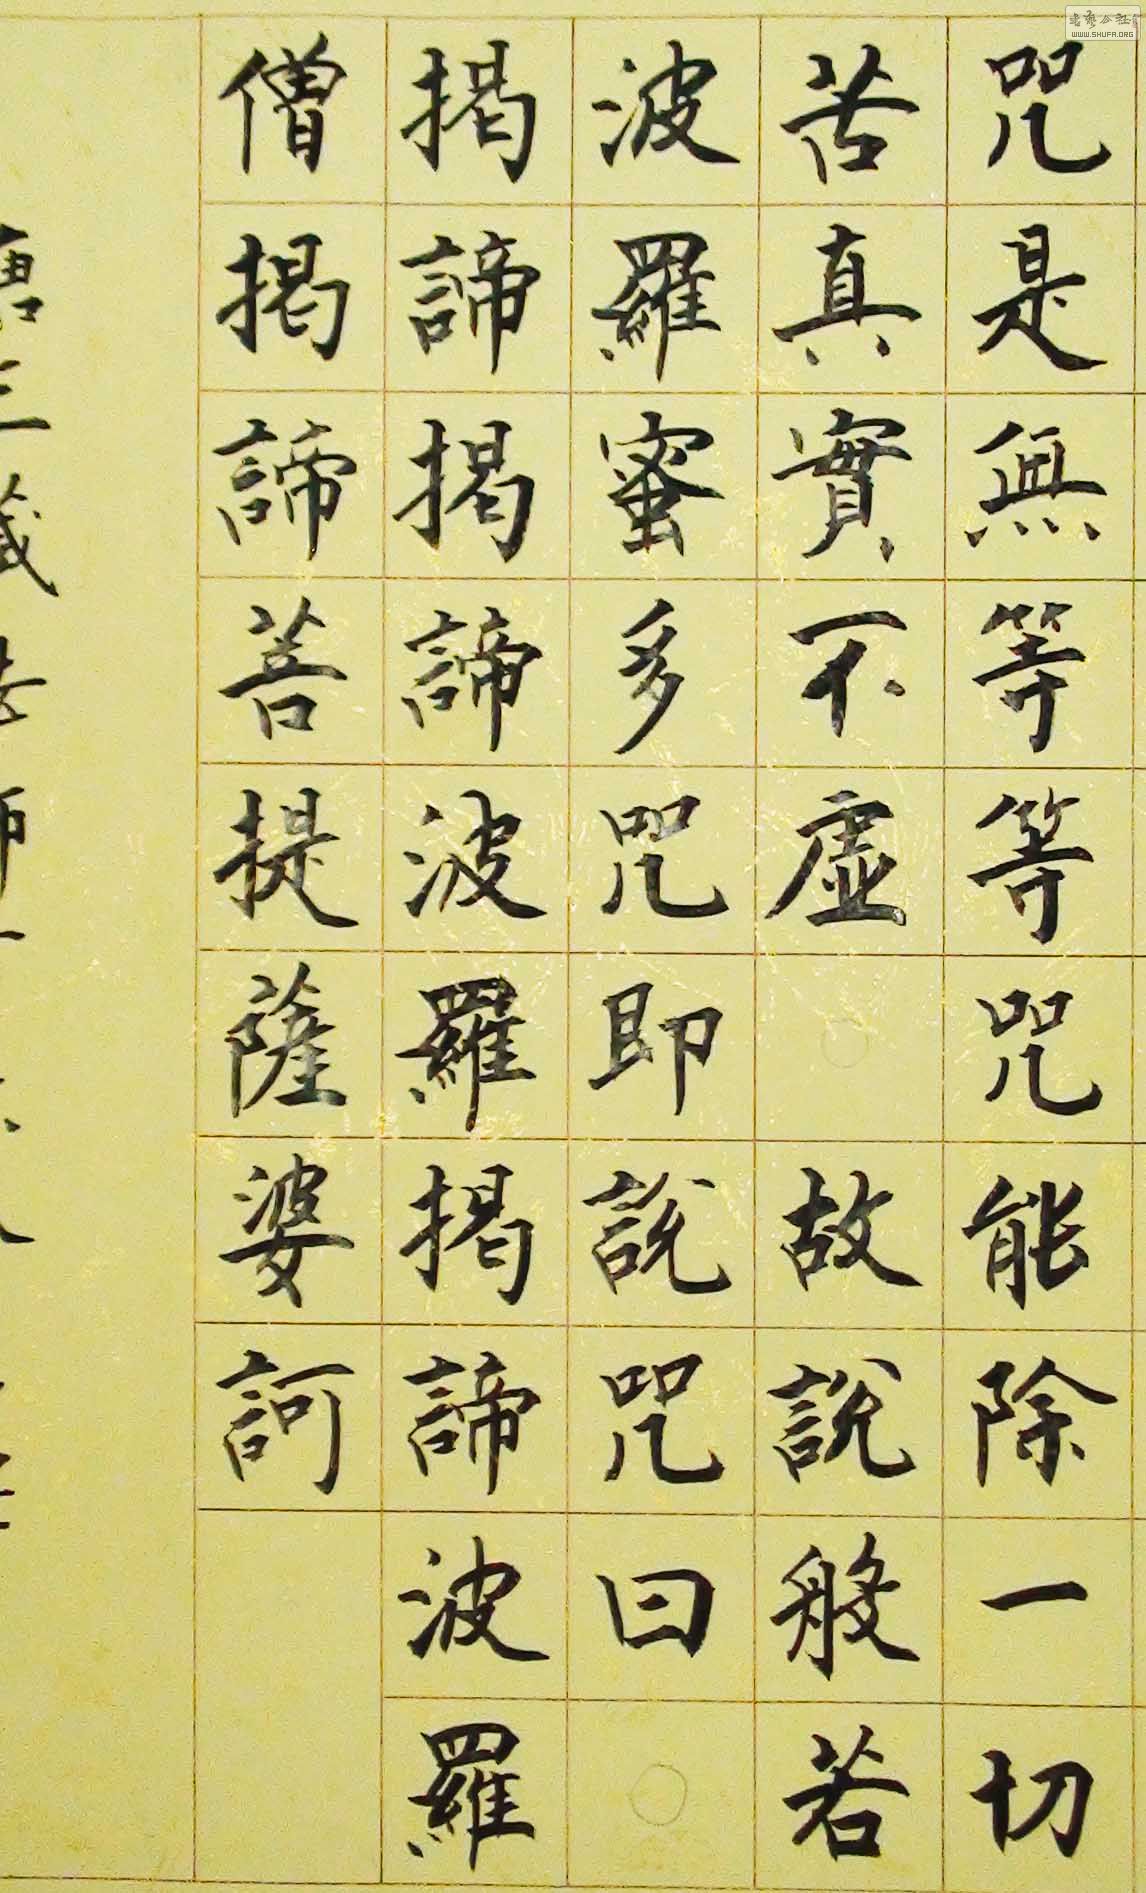 咒是無等等咒能除一切
苦真實不虛故說般若
波羅蜜多咒即說咒曰
揭諦揭諦波羅揭諦波羅
僧揭諦菩提薩婆訶
WWW.SHUFA.ORG